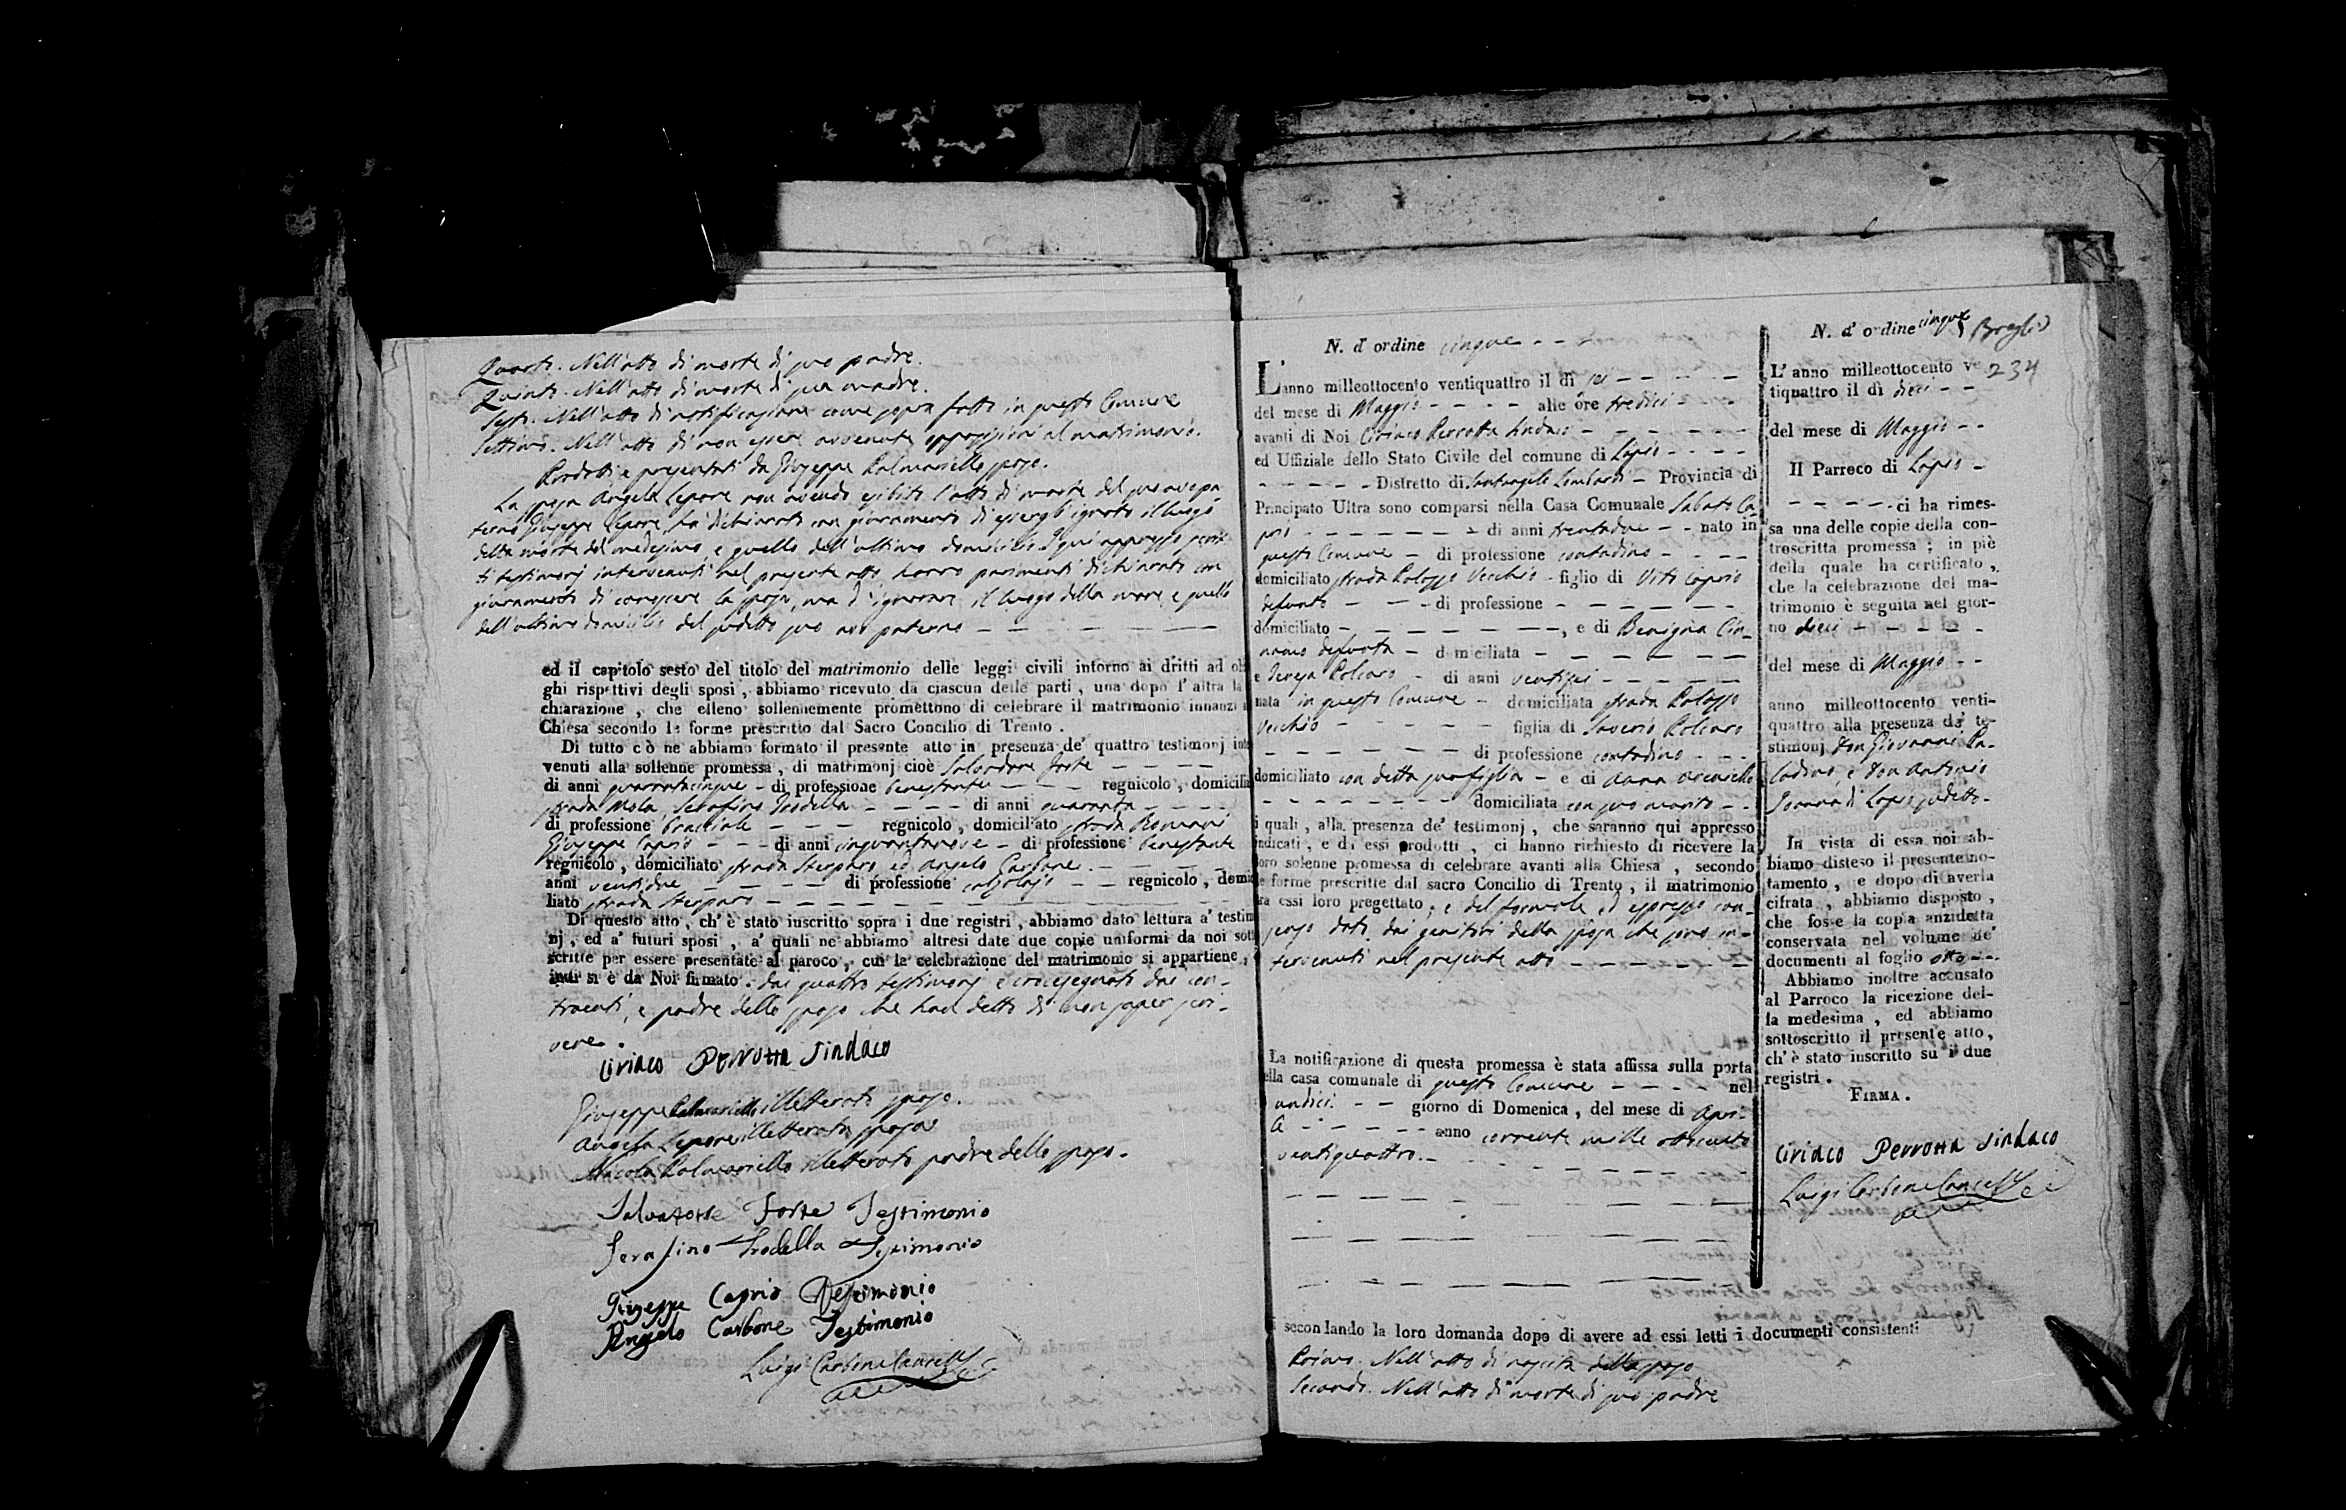 Quarto. Nell'atto di morte di suo padre.
Quinto. Nell'atto di morte di sua madre.
Sesto. Nell'atto di notificazione come sopra fatto in questo Comune
Settimo. Nell'atto di non essere avvenute opposizioni al matrimonio.
Prodotti e presentati da Giuseppe Palmariello sposo.
La sposa Angela Lepore non avendo esibito l'atto di morte del suo avo pa
terno Giuseppe Lepore, ha dichiarato con giuramento di essergli ignoto il luogo
della morte del medesimo, e quello dell'ultimo domicilio. I qui appresso scrit
ti testimonj intervenuti nel presente atto, hanno parimenti dichiarato con
giuramento di conoscere la sposa, ma d'ignorare il luogo della morte, e quello
dell'ultimo domicilio del sudetto suo avo paterno
ed il capitolo sesto del titolo del matrimonio delle leggi civili intorno ai dritti ad ob
ghi rispettivi degli sposi, abbiamo ricevuto da ciascuna delle parti, una dopo l'altra la
chiarazione, che elleno sollennemente promettono di celebrare il matrimonio innanzi a
Chiesa secondo le forme prescritto dal Sacro Concilio di Trento.
Di tutto ciò ne abbiamo formato il presente atto in presenza de' quattro testimonj inte
venuti alla sollenne promessa, di matrimonj cioè Salvadore Forte
di anni quarantacinque - di professione benestante - regnicolo, domicilia
strada Mola, Serafino Trodella - di anni quaranta
di professione bracciale - regnicolo, domiciliato strada Romani
Giuseppe Caprio - di anni cinquantanove - di professione benestante
regnicolo, domiciliato strada Sterparo, ed Angelo Carbone.
anni ventidue - di professione calzolajo - regnicolo, domic
liato strada Sterparo
Di questo atto, ch'è stato inscritto sopra i due registri, abbiamo dato lettura a' testim
nj, ed a' futuri sposi, a' quali ne abbiamo altresì date due copie uniformi da noi sott
scritte per essere presentate al paroco, cui la celebrazione del matrimonio si appartiene,
indi si è da Noi firmato. dai quattro testimonj e crocesegnato dai con-
traenti, e padre dello sposo che han detto di non saper scri-
vere.
Ciriaco Perrotta Sindaco
Giuseppe Palmariello illetterato sposo.
Angela Lepore illetterata sposa
Nicola Palmariello illetterato padre dello sposo.
Salvatore Forte Testimonio
Serafino Trodella Testimonio
Giuseppe Caprio Testimonio
Angelo Carbone Testimonio
Luigi Carbone Cancell.
N. d'ordine cinque
L'anno milleottocento ventiquattro il dì sei
del mese di Maggio - alle ore tredici
avanti di Noi Ciriaco Perrotta Sindaco
ed Uffiziale dello Stato Civile del comune di Lapio
Distretto di Santangelo Lombardi - Provincia di
Principato Ultra sono comparsi nella Casa Comunale Sabato Ca
prio - di anni trentadue - nato in
questo Comune - di professione contadino
domiciliato strada Palazzo Vecchio - figlio di Vito Caprio
defunto - di professione
domiciliato - , e di Benigna Cin-
namo defunta - domiciliata
e Teresa Polcaro - di anni ventisei
nata in questo Comune - domiciliata strada Palazzo
Vecchio - figlia di Saverio Polcaro
di professione contadino
domiciliato con detta sua figlia - e di Anna
domiciliata con suo marito
i quali, alla presenza de' testimonj, che saranno qui appresso
indicati, e da essi prodotti, ci hanno richiesto di ricevere la
loro solenne promessa di celebrare avanti alla Chiesa, secondo
le forme prescritte dal sacro Concilio di Trento, il matrimonio
fra essi loro progettato; e del formale ed espresso con-
senso dato dai genitori della sposa che sono in-
tervenuti nel presente atto
La notificazione di questa promessa è stata affissa sulla porta
della casa comunale di questo Comune - nel
undici - giorno di Domenica, del mese di Apri-
le - anno corrente mille ottocento
ventiquattro.
secondando la loro domanda dopo di avere ad essi letti i documenti consistenti
Primo. Nell'atto di nascita dello sposo
Secondo. Nell'atto di morte di suo padre
N. d'ordine cinque
234
L'anno milleottocento ve
tiquattro il dì dieci
del mese di Maggio
Il Parroco di Lapio
ci ha rimes-
sa una delle copie della con-
troscritta promessa; in piè
della quale ha certificato,
che la celebrazione del ma-
trimonio è seguita nel gior-
no dieci
del mese di Maggio
anno milleottocento venti-
quattro alla presenza de' te-
stimonj Don Giovanni Pa-
ladino, e Don Antonio
di Lapio sudetto.
In vista di essa noi ab-
biamo disteso il presente no-
tamento, e dopo di averla
cifrata, abbiamo disposto,
che fosse la copia anzidetta
conservata nel volume de'
documenti al foglio otto
Abbiamo inoltre accusato
al Parroco la ricezione del-
la medesima, ed abbiamo
sottoscritto il presente atto,
ch'è stato inscritto su i due
registri.
FIRMA.
Ciriaco Perrotta Sindaco
Luigi Carbone Cancell.